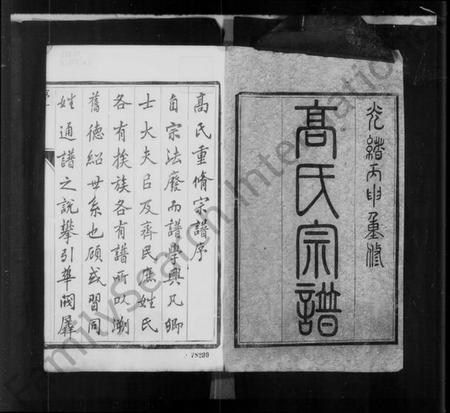 光緒丙申重修
高氏宗譜
高氏重脩宗譜序
自宗法廢而譜學興凡卿
士大夫以及齊民庶姓氏
各有族族各有譜所以溯
舊德紹世系也顧或習同
姓通譜之說攀引華閥羼
78299
FamilySearch International